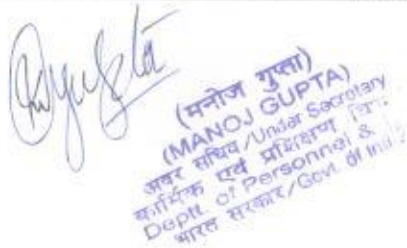 (मनोज गुप्ता)
(MANOJ GUPTA)
अवर सचिव/Under Secretary
कार्मिक एवं प्रशिक्षण
Deptt. of Personnel &
भारत सरकार/Govt. of